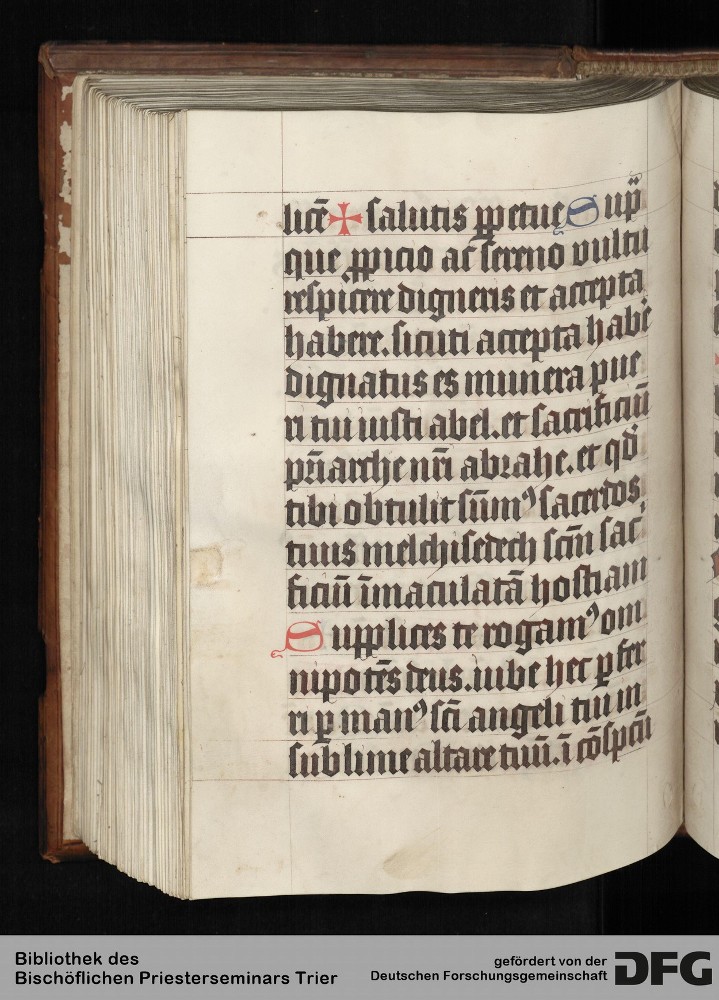 licē ✠ salutis ꝑpetue Sup̄
que ꝓpicio ac sereno uultu
respicere digneris et accepta
habere. sicuti accepta habe͛
dignatus es munera pue
ri tui iusti abel. et sacrificiū
pr̄iarche nr̄i abrahe. et qd̓
tibi obtulit sūmꝰ sacerdos
tuus melchisedech sc̄m sac͛
ficiū īmaculatā hostiam
Supplices te rogamꝰ om
nipotēs deus. iube hec ꝑfer
ri ꝑ manꝰ sc̄i angeli tui in
sublime altare tuū. ī cōspcū
Bibliothek des
Bischöflichen Priesterseminars Trier
gefördert von der
Deutschen Forschungsgemeinschaft DFG